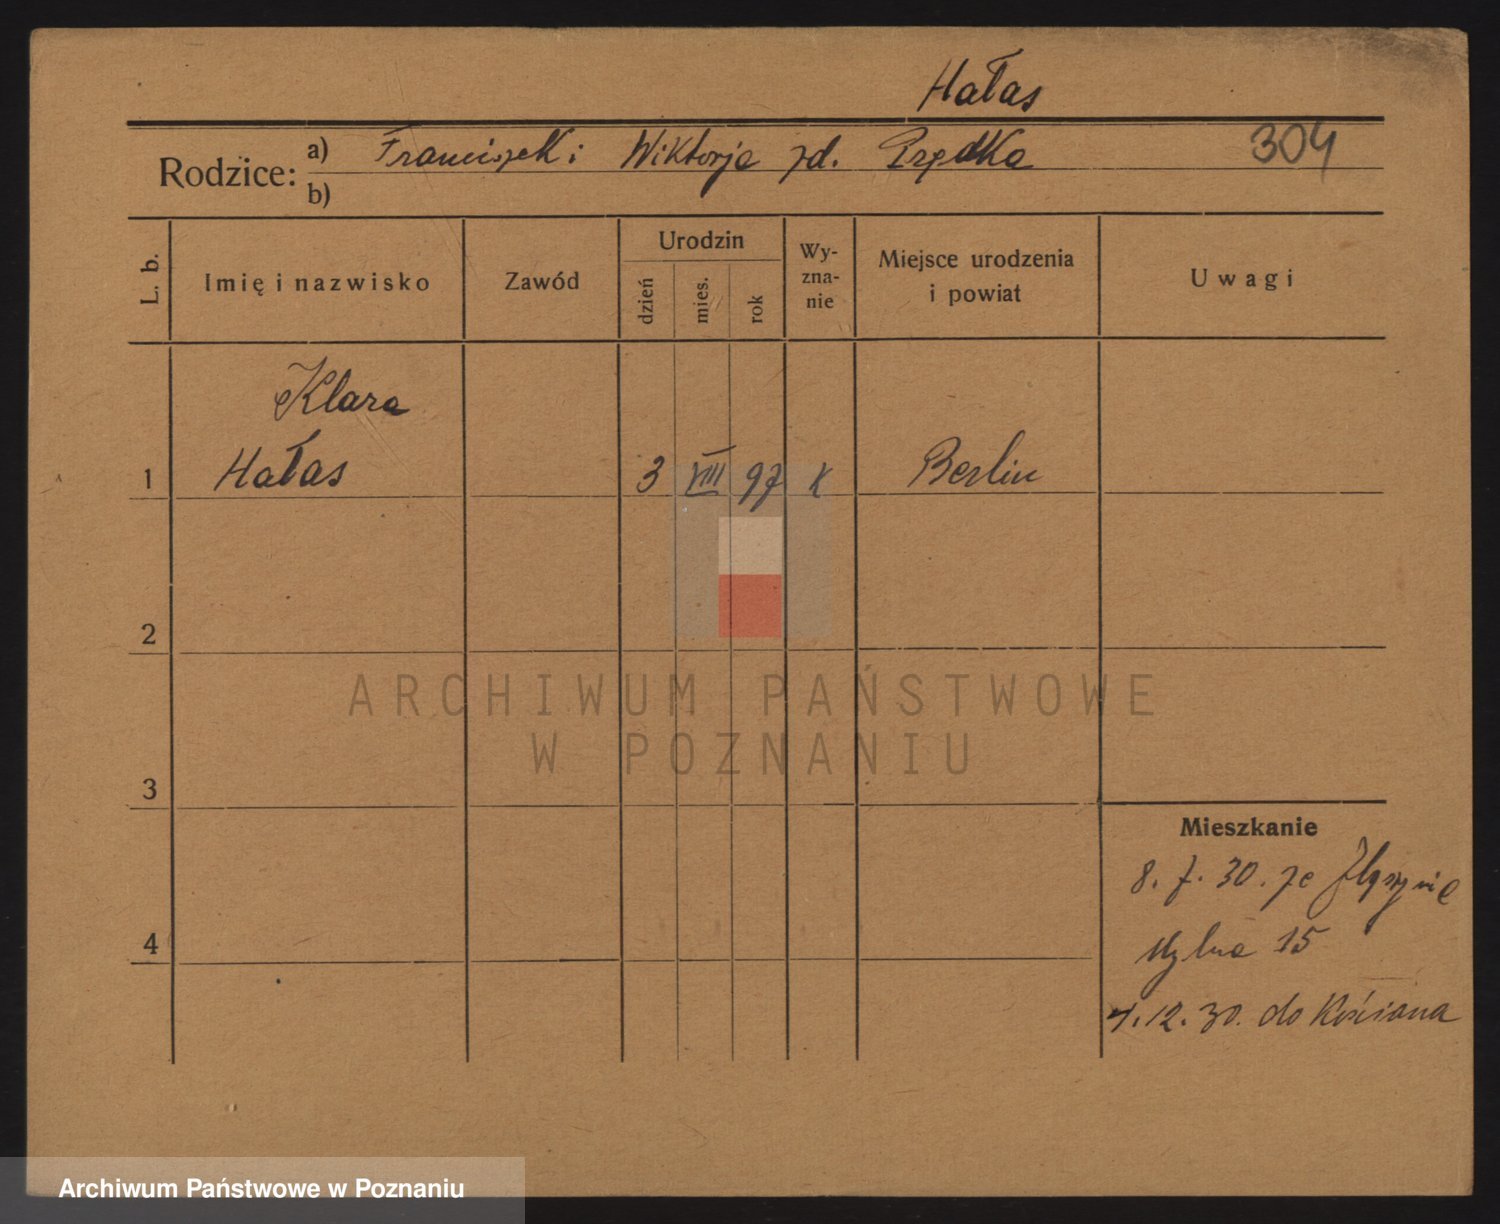 Hałas
304
Rodzice: a) Franciszek i Wiktorja zd. Prędka
b)
L. b.
Imię i nazwisko
Zawód
Urodzin
dzień
mies.
rok
Wy-
zna-
nie
Miejsce urodzenia
i powiat
Uwagi
Klara
1 Hałas 3 VIII 97 k Berlin
2
3
4
Mieszkanie
8. 7. 30. ze
15
4. 12. 30. do Kościana
ARCHIWUM PAŃSTWOWE
W POZNANIU
Archiwum Państwowe w Poznaniu